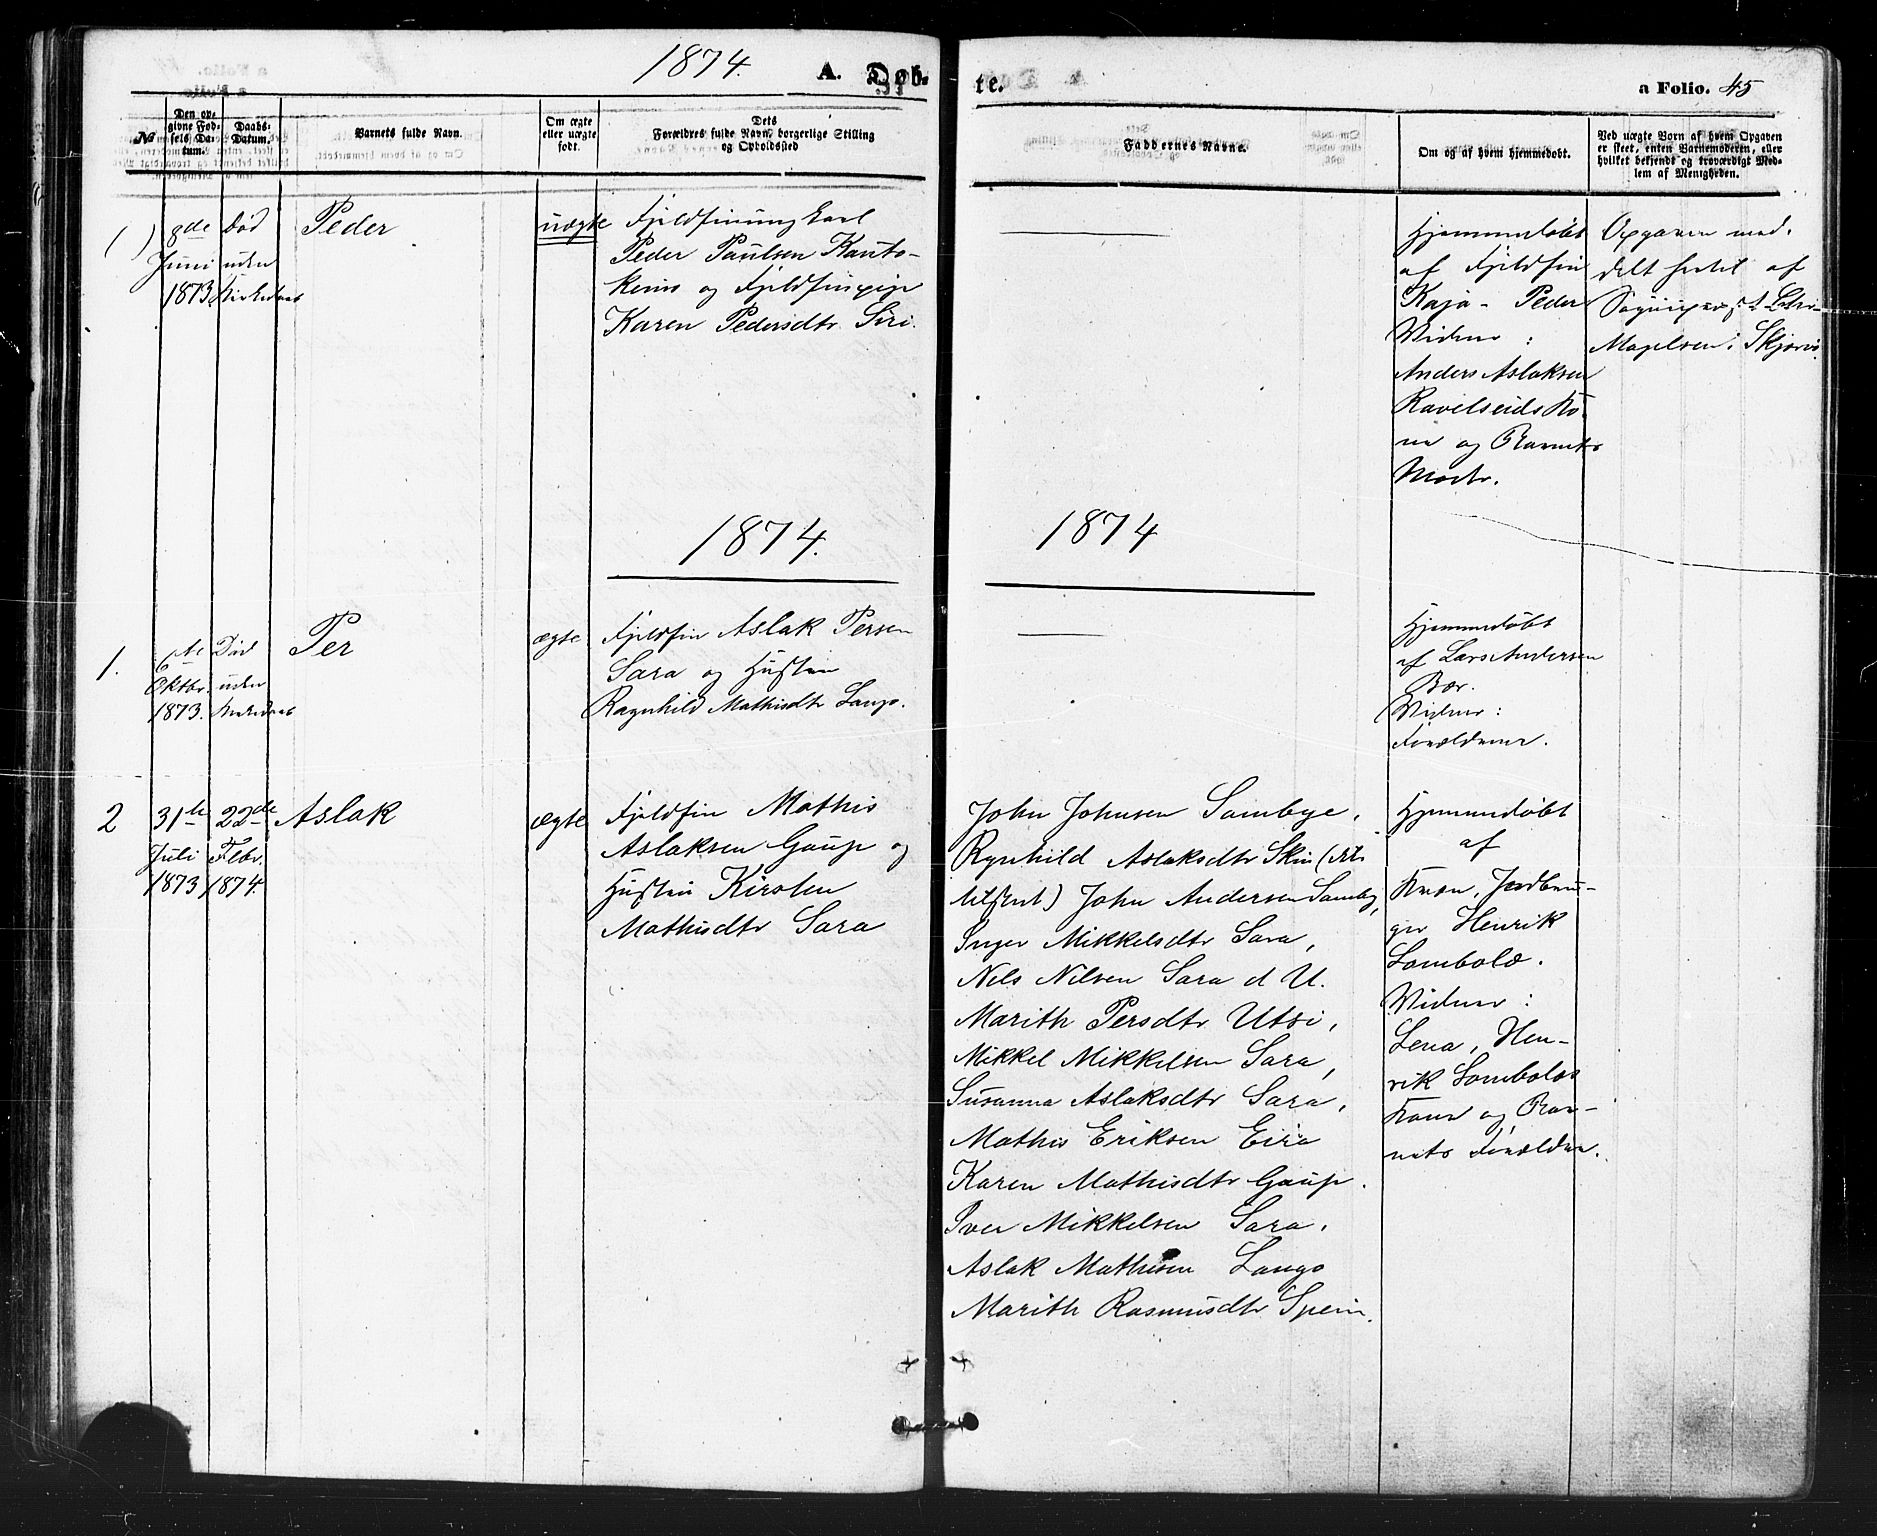 1874. A. Døb- te. a Folio. 45
№
Den op-
givne Fød-
sels Da-
tum.
Daabs-
Datum.
Barnets fulde Navn.
Om ægte
eller uægte
født.
Dets
Forældres fulde Navn, borgerlige Stilling
og Opholdssted
Faddernes Navne.
Om og af hvem hjemmedøbt.
Ved uægte Børn af hvem Opgaven
er skeet, enten Barnemoderen, eller
hvilket bekjendt og troværdigt Med-
lem af Menigheden.
( )
8de
Juni
1873
Død
uden
Kirkedaab
Peder
uægte
Fjeldfinungkarl
Peder Paulsen Kauto-
keino og Fjeldfinpige
Karen Pedersdtr. Siri.
Hjemmedøbt
af Fjeldfin
Kaja- Peder
Vidner:
Anders Aslaksen
Ravelseids Ko-
ne og Barnets
Moder.
Opgaven med-
delt hertil af
Sogneprest
Magelsen i Skjervø
1874.
1874
1.
6te
Oktbr.
1873.
Død
uden
Kirkedaab
Per
ægte
Fjeldfin Aslak Persen
Sara og Hustru
Ragnhild Mathisdtr Lango.
Hjemmedøbt
af Lars Andersen
Bær.
Vidner:
Forældrene.
2
31te
Juli
1873
22de
Febr.
1874.
Aslak
ægte
Fjeldfin Mathis
Aslaksen Gaup og
Hustru Kirsten
Mathisdtr Sara
John Johnsen Sombye,
Rynhild Aslaksdtr Skin (ikke
tilstede) John Andersen Somby,
Inger Mikkelsdtr Sara,
Nils Nilsen Sara d U.
Marith Persdtr Utsi,
Mikkel Mikkelsen Sara,
Susanna Aslaksdtr Sara,
Mathis Eriksen Eira
Karen Mathisdtr Gaup.
Iver Mikkelsen Sara,
Aslak Mathisen Lango
Marith Rasmusdtr Spein.
Hjemmedøbt
af
Kvæn, Jordbru-
ger Henrik
Lombola.
Vidner:
Lena, Hen-
rik Lombolas
Kone og Bar-
nets Forældre.